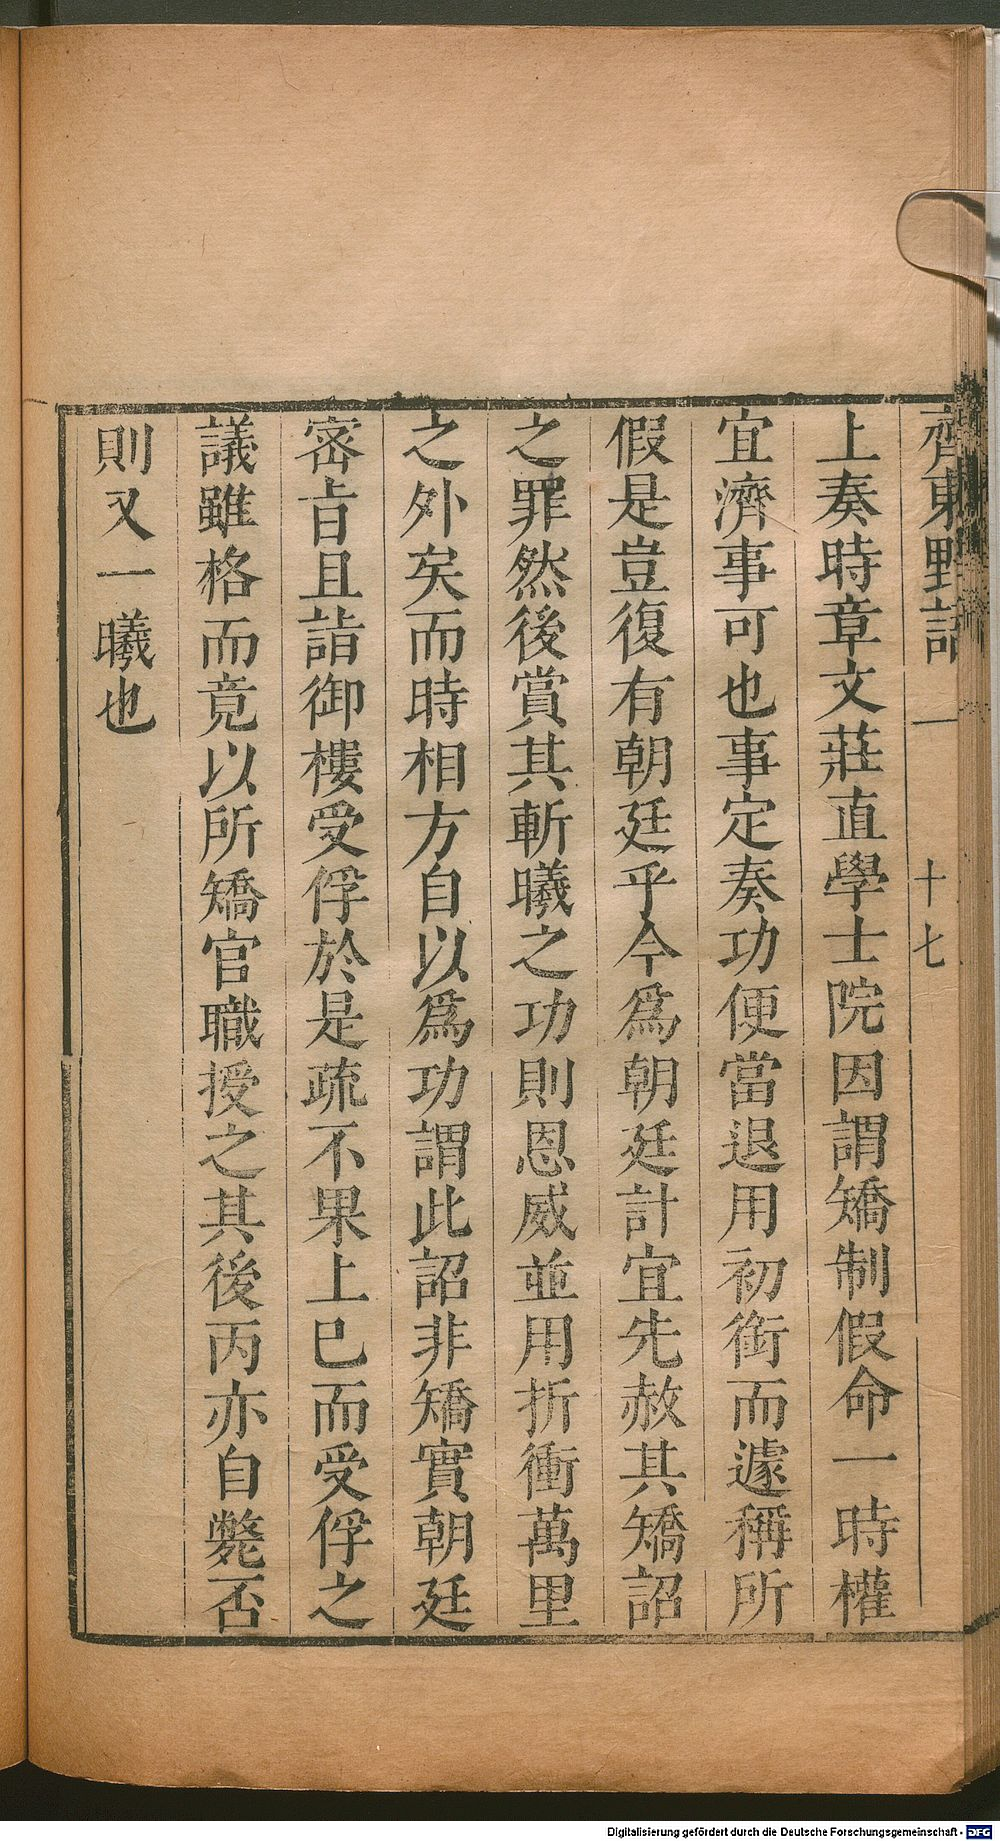 齊東野語 一 十七
上奏時章文莊直學士院因謂矯制假命一時權
宜濟事可也事定奏功便當退用初銜而遽稱所
假是豈復有朝廷乎今爲朝廷計宜先赦其矯詔
之罪然後賞其斬曦之功則恩威並用折衝萬里
之外矣而時相方自以爲功謂此詔非矯實朝廷
密旨且詣御樓受俘於是疏不果上巳而受俘之
議雖格而竟以所矯官職授之其後丙亦自斃否
則又一曦也
Digitalisierung gefördert durch die Deutsche Forschungsgemeinschaft - DFG